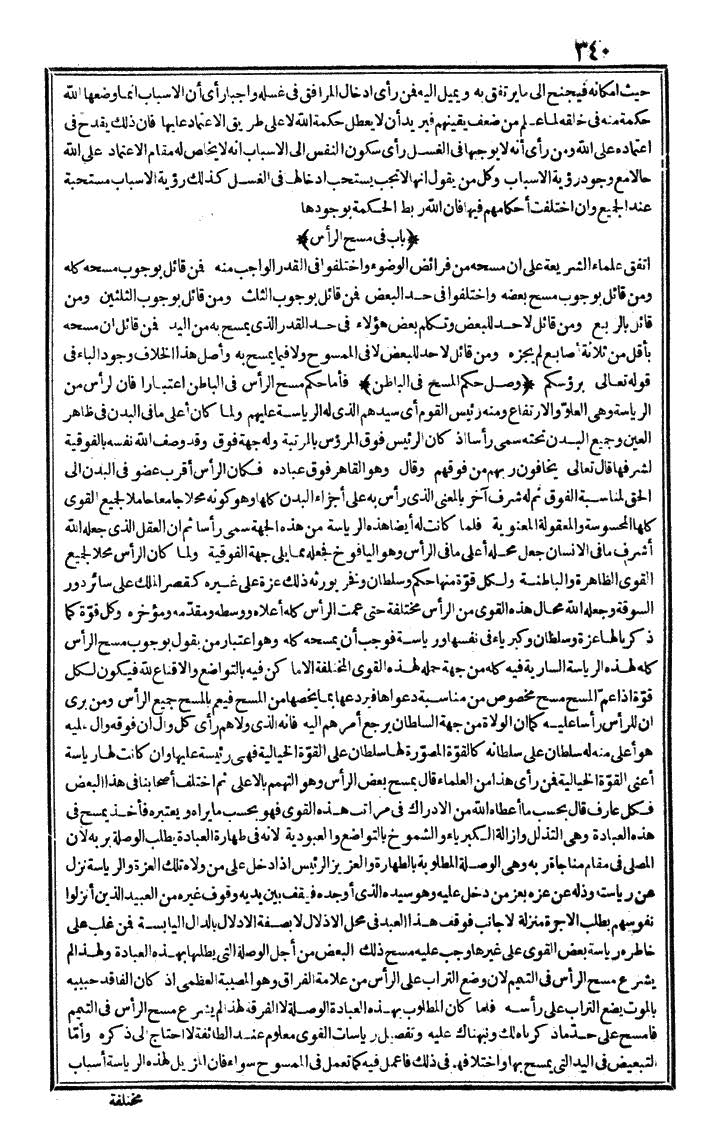 ٣٤٠
حيث امكانه فيجنح الى ما يرتفق به ويميل اليه فن رأى ادخال المرافق فى غسله واجبا رأى أن الاسباب انما وضعها الله
حكمة منه فى خلقه لما علم من ضعف يقينهم فيريد أن لا يعطل حكمة الله لا على طريق الاعتماد عليها فان ذلك يقدح فى
اعتماده على الله ومن رأى أنه لا يوجبها فى الغسل رأى سكون النفس الى الاسباب انه لا يخلص له مقام الاعتماد على الله
حالا مع وجود رؤية الاسباب وكل من يقول انها لا تجب يستحب ادخالها فى الغسل كذلك رؤية الاسباب مستحبة
عند الجميع وان اختلفت أحكامهم فيها فان الله ربط الحكمة بوجودها
﴿باب فى مسح الرأس﴾
اتفق علماء الشريعة على ان مسحه من فرائض الوضوء واختلفوا فى القدر الواجب منه فمن قائل بوجوب مسحه كله
ومن قائل بوجوب مسح بعضه واختلفوا فى حد البعض فمن قائل بوجوب الثلث ومن قائل بوجوب الثلثين ومن
قائل بالربع ومن قائل لا حد للبعض وتكلم بعض هؤلاء فى حد القدر الذى يمسح به من اليد فمن قائل ان مسحه
بأقل من ثلاثة أصابع لم يجزه ومن قائل لا حد للبعض لا فى الممسوح ولا فيما يمسح به وأصل هذا الخلاف وجود الباء فى
قوله تعالى برؤسكم ﴿وصل حكم المسح فى الباطن﴾ فأما حكم مسح الرأس فى الباطن اعتبارا فان لرأس من
الرياسة وهى العلو والارتفاع ومنه رئيس القوم أى سيدهم الذى له الرياسة عليهم ولما كان أعلى ما فى البدن فى ظاهر
العين وجميع البدن تحته سمى رأسا اذ كان الرئيس فوق المرؤس بالمرتبة وله جهة فوق وقد وصف الله نفسه بالفوقية
لشرفها قال تعالى يخافون ربهم من فوقهم وقال وهو القاهر فوق عباده فكان الرأس أقرب عضو فى البدن الى
الحق لمناسبة الفوق ثم له شرف آخر بالمعنى الذى رأس به على أجزاء البدن كلها وهو كونه محلا جامعا حاملا لجميع القوى
كلها المحسوسة والمعقولة المعنوية فلما كانت له أيضا هذه الرياسة من هذه الجهة سمى رأسا ثم ان العقل الذى جعله الله
أشرف ما فى الانسان جعل محله أعلى ما فى الرأس وهو اليافوخ فجعله مما يلى جهة الفوقية ولما كان الرأس محلا لجميع
القوى الظاهرة والباطنة ولكل قوّة منها حكم وسلطان ونفر يورثه ذلك عزة على غيره كقصر الملك على سائر دور
السوقة وجعل الله محال هذه القوى من الرأس مختلفة حتى عمت الرأس كله أعلاه ووسطه ومقدّمه ومؤخره وكل قوّة كما
ذكر بالها عزة وسلطان وكبرياء فى نفسها ورياسة فوجب أن يمسحه كله وهو اعتبار من يقول بوجوب مسح الرأس
كله لهذه الرياسة السارية فيه كله من جهة حمله لهذه القوى المختلفة الاماكن فيه بالتواضع والاقناع لله فيكون لكل
قوّة اذا عم المسح مسح مخصوص من مناسبة دعواها فيردعها بما يخصها من المسح فيعم بالمسح جميع الرأس ومن يرى
ان للرأس رأسا عليه كما ان الولاة من جهة السلطان يرجع أمرهم اليه فانه الذى ولاهم رأى كل وال ان فوقه وال عليه
هو أعلى منه له سلطان على سلطانه كالقوّة المصوّرة لها سلطان على القوّة الخيالية فهى رئيسة عليها وان كانت لها رياسة
أعنى القوّة الخيالية فمن رأى هذا من العلماء قال بمسح بعض الرأس وهو التهمم بالاعلى ثم اختلف أصحابنا فى هذا البعض
فكل عارف قال بحسب ما أعطاه الله من الادراك فى مراتب هذه القوى فهو بحسب ما يراه ويعتبره فأخذ يمسح فى
هذه العبادة وهى التذلل وازالة الكبرياء والشموخ بالتواضع والعبودية لانه فى طهارة العبادة يطلب الوصلة بربه لان
المصلى فى مقام مناجاة ربه وهى الوصلة المطلوبة بالطهارة والعزيز الرئيس اذا دخل على من ولاه تلك العزة والرياسة نزل
عن رياسته وذله عن عزه بعز من دخل عليه وهو سيده الذى أوجده فيقف بين يديه وقوف غيره من العبيد الذين أنزلوا
نفوسهم بطلب الاجرة منزلة لاجانب فوقف هذا العبد فى محل الاذلال لا بصفة الادلال بالدال اليابسة فمن غلب على
خاطره رياسة بعض القوى على غيرها وجب عليه مسح ذلك البعض من أجل الوصلة التى يطلبها بهذه العبادة ولهذا لم
يشرع مسح الرأس فى التيمم لان وضع التراب على الرأس من علامة الفراق وهو المصيبة العظمى اذ كان الفاقد حبيبه
بالموت يضع التراب على رأسه فلما كان المطلوب بهذه العبادة الوصلة لا الفرقة لهذا لم يشرع مسح الرأس فى التيمم
فامسح على حدّ ما ذكرناه لك ونبهناك عليه وتفصيل رياسات القوى معلوم عند الطائفة لا احتاج الى ذكره وأمّا
التبعيض فى اليد التى يمسح بها واختلافهم فى ذلك فاعمل فيه كما تعمل فى الممسوح سواء فان المزيل لهذه الرياسة أسباب
مختلفة